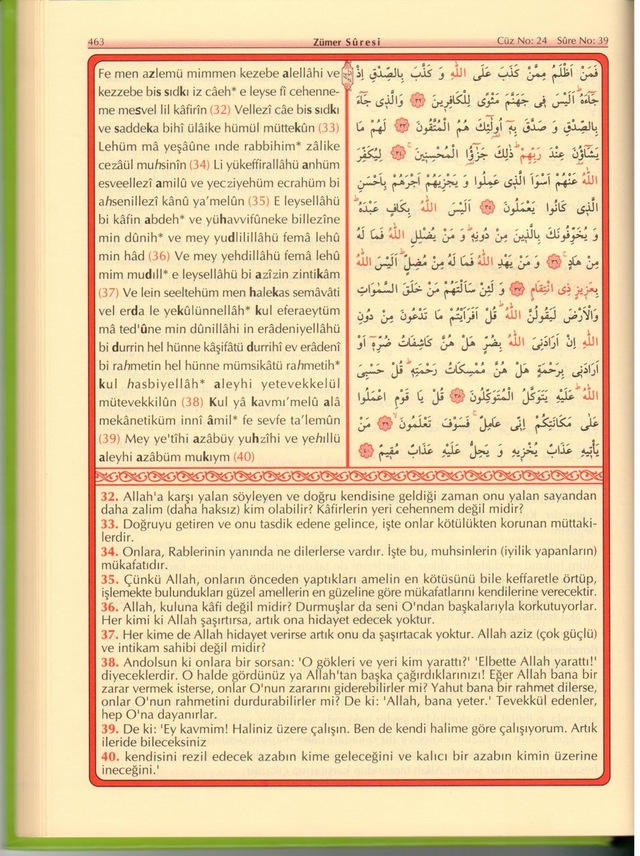 463 Zümer Sûresi Cüz No: 24 Sûre No: 39
Fe men azlemü mimmen kezebe alellâhi ve
kezzebe bis sıdkı iz câeh* e leyse fî cehenne-
me mesvel lil kâfirîn (32) Vellezî câe bis sıdkı
ve saddeka bihî ülâike hümül müttekûn (33)
Lehüm mâ yeşâûne inde rabbihim* zâlike
cezâül muhsinîn (34) Li yükeffirallâhü anhüm
esveellezî amilû ve yecziyehüm ecrahüm bi
ahsenillezî kânû ya'melûn (35) E leysellâhü
bi kâfin abdeh* ve yühavvifûneke billezîne
min dûnih* ve mey yudlilillâhü femâ lehû
min hâd (36) Ve mey yehdillâhü femâ lehû
mim mudıll* e leysellâhü bi azîzin zintikâm
(37) Ve lein seeltehüm men halekas semâvâti
vel erda le yekûlünnellah* kul eferaeytüm
mâ ted'ûne min dûnillâhi in erâdeniyellâhü
bi durrin hel hünne kâşifâtü durrihî ev erâdenî
bi rahmetin hel hünne mümsikâtü rahmetih*
kul hasbiyellâh* aleyhi yetevekkelül
mütevekkilûn (38) Kul yâ kavmı'melû alâ
mekânetiküm innî âmil* fe sevfe ta'lemûn
(39) Mey ye'tîhi azâbüy yuhzîhi ve yehıllü
aleyhi azâbüm mukıym (40)
فَمَنْ اَظْلَمُ مِمَّنْ كَذَبَ عَلَى اللّٰهِ وَ كَذَّبَ بِالصِّدْقِ اِذْ
جَٓاءَهُ اَلَيْسَ فٖى جَهَنَّمَ مَثْوًى لِلْكَافِرٖينَ ﴿٣٢﴾ وَالَّذٖى جَٓاءَ
بِالصِّدْقِ وَ صَدَّقَ بِهٖٓ اُولٰٓئِكَ هُمُ الْمُتَّقُونَ ﴿٣٣﴾ لَهُمْ مَا
يَشَٓاؤُنَ عِنْدَ رَبِّهِمْ ذٰلِكَ جَزٰٓؤُا الْمُحْسِنٖينَ ﴿٣٤﴾ لِيُكَفِّرَ
اللّٰهُ عَنْهُمْ اَسْوَاَ الَّذٖى عَمِلُوا وَ يَجْزِيَهُمْ اَجْرَهُمْ بِاَحْسَنِ
الَّذٖى كَانُوا يَعْمَلُونَ ﴿٣٥﴾ اَلَيْسَ اللّٰهُ بِكَافٍ عَبْدَهُ
وَ يُخَوِّفُونَكَ بِالَّذٖينَ مِنْ دُونِهٖ وَ مَنْ يُضْلِلِ اللّٰهُ فَمَا لَهُ
مِنْ هَادٍ ﴿٣٦﴾ وَ مَنْ يَهْدِ اللّٰهُ فَمَا لَهُ مِنْ مُضِلٍّ اَلَيْسَ اللّٰهُ
بِعَزٖيزٍ ذِى انْتِقَامٍ ﴿٣٧﴾ وَ لَئِنْ سَاَلْتَهُمْ مَنْ خَلَقَ السَّمٰوَاتِ
وَالْاَرْضَ لَيَقُولُنَّ اللّٰهُ قُلْ اَفَرَاَيْتُمْ مَا تَدْعُونَ مِنْ دُونِ
اللّٰهِ اِنْ اَرَادَنِىَ اللّٰهُ بِضُرٍّ هَلْ هُنَّ كَاشِفَاتُ ضُرِّهٖٓ اَوْ
اَرَادَنٖى بِرَحْمَةٍ هَلْ هُنَّ مُمْسِكَاتُ رَحْمَتِهٖ قُلْ حَسْبِىَ
اللّٰهُ عَلَيْهِ يَتَوَكَّلُ الْمُتَوَكِّلُونَ ﴿٣٨﴾ قُلْ يَا قَوْمِ اعْمَلُوا
عَلٰى مَكَانَتِكُمْ اِنّٖى عَامِلٌ فَسَوْفَ تَعْلَمُونَ ﴿٣٩﴾ مَنْ
يَأْتٖيهِ عَذَابٌ يُخْزٖيهِ وَ يَحِلُّ عَلَيْهِ عَذَابٌ مُقٖيمٌ ﴿٤٠﴾
32. Allah'a karşı yalan söyleyen ve doğru kendisine geldiği zaman onu yalan sayandan
daha zalim (daha haksız) kim olabilir? Kâfirlerin yeri cehennem değil midir?
33. Doğruyu getiren ve onu tasdik edene gelince, işte onlar kötülükten korunan müttaki-
lerdir.
34. Onlara, Rablerinin yanında ne dilerlerse vardır. İşte bu, muhsinlerin (iyilik yapanların)
mükafatıdır.
35. Çünkü Allah, onların önceden yaptıkları amelin en kötüsünü bile keffaretle örtüp,
işlemekte bulundukları güzel amellerin en güzeline göre mükafatlarını kendilerine verecektir.
36. Allah, kuluna kâfi değil midir? Durmuşlar da seni O'ndan başkalarıyla korkutuyorlar.
Her kimi ki Allah şaşırtırsa, artık ona hidayet edecek yoktur.
37. Her kime de Allah hidayet verirse artık onu da şaşırtacak yoktur. Allah aziz (çok güçlü)
ve intikam sahibi değil midir?
38. Andolsun ki onlara bir sorsan: 'O gökleri ve yeri kim yarattı?' 'Elbette Allah yarattı!'
diyeceklerdir. O halde gördünüz ya Allah'tan başka çağırdıklarınızı! Eğer Allah bana bir
zarar vermek isterse, onlar O'nun zararını giderebilirler mi? Yahut bana bir rahmet dilerse,
onlar O'nun rahmetini durdurabilirler mi? De ki: 'Allah, bana yeter.' Tevekkül edenler,
hep O'na dayanırlar.
39. De ki: 'Ey kavmim! Haliniz üzere çalışın. Ben de kendi halime göre çalışıyorum. Artık
ileride bileceksiniz
40. kendisini rezil edecek azabın kime geleceğini ve kalıcı bir azabın kimin üzerine
ineceğini.'